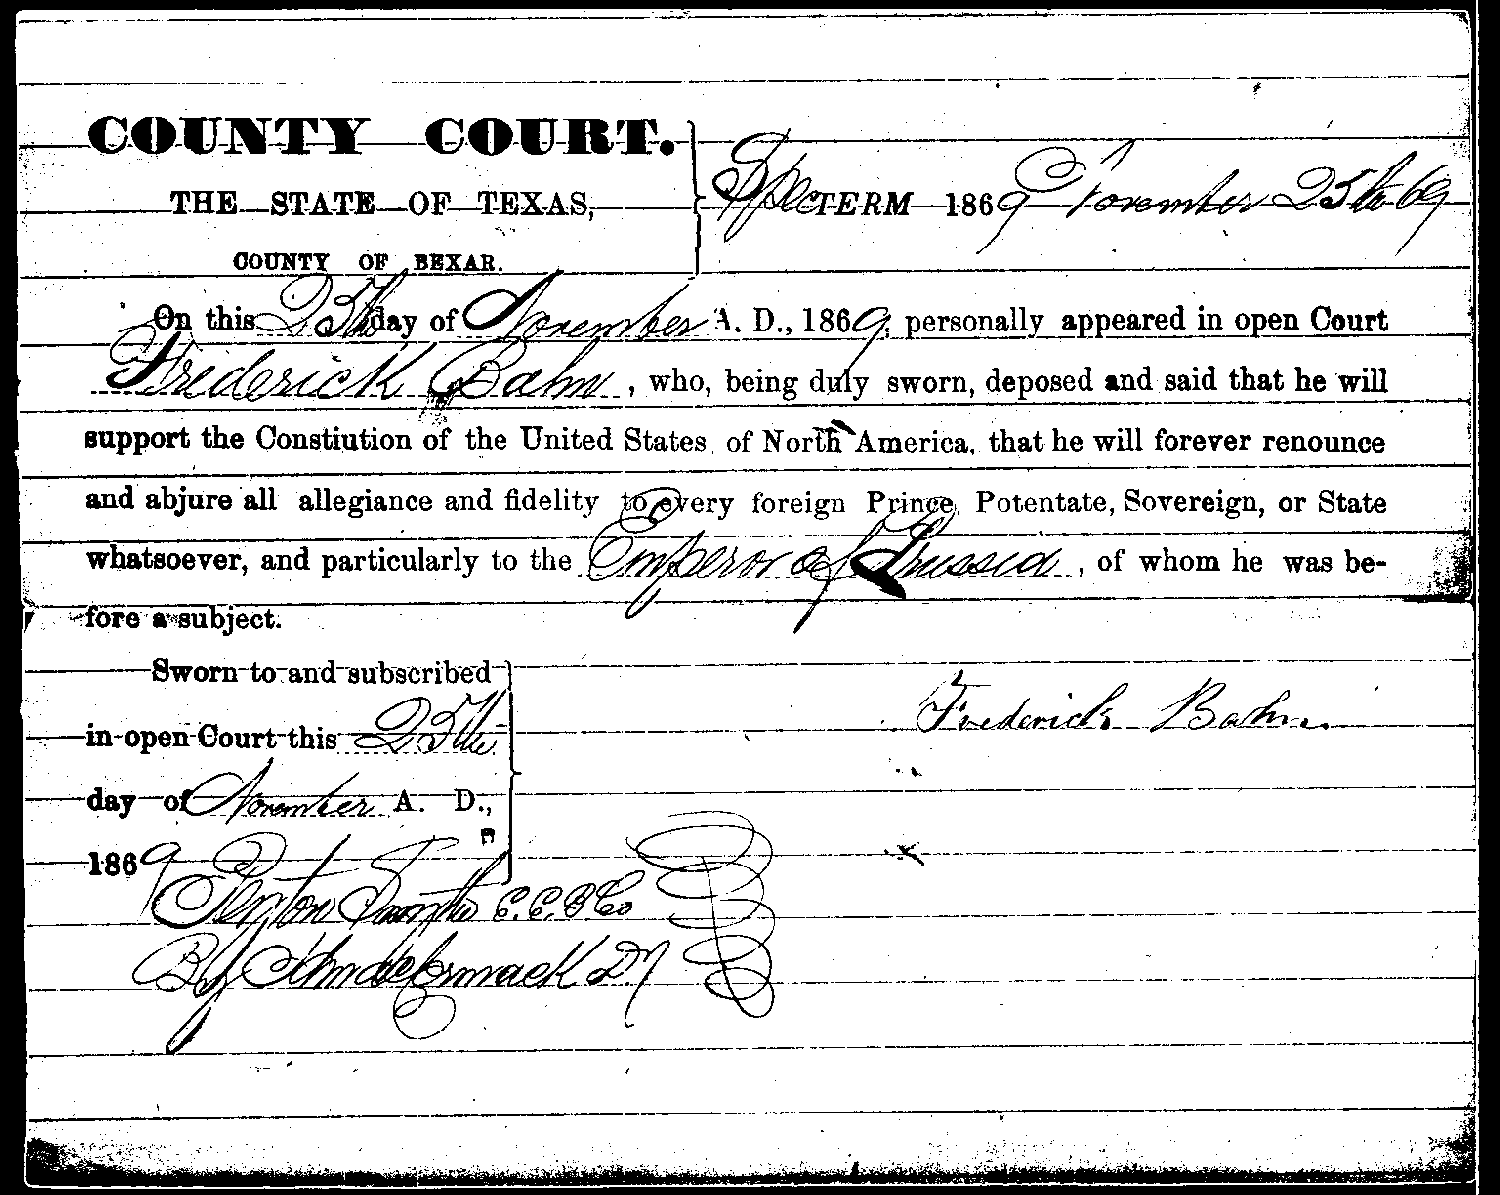 COUNTY COURT.
THE STATE OF TEXAS,
COUNTY OF BEXAR.
Spec TERM 1869 November 25th 69
On this 25th day of November A. D., 1869, personally appeared in open Court
Frederick Bahn, who, being duly sworn, deposed and said that he will
support the Constiution of the United States of North America, that he will forever renounce
and abjure all allegiance and fidelity to every foreign Prince, Potentate, Sovereign, or State
whatsoever, and particularly to the Emperor of Prussia, of whom he was be-
fore a subject.
Sworn to and subscribed
in open Court this 25th
day of November A. D.,
1869
Frederick Bahn.
C.C.B Co
By McCormack Dy